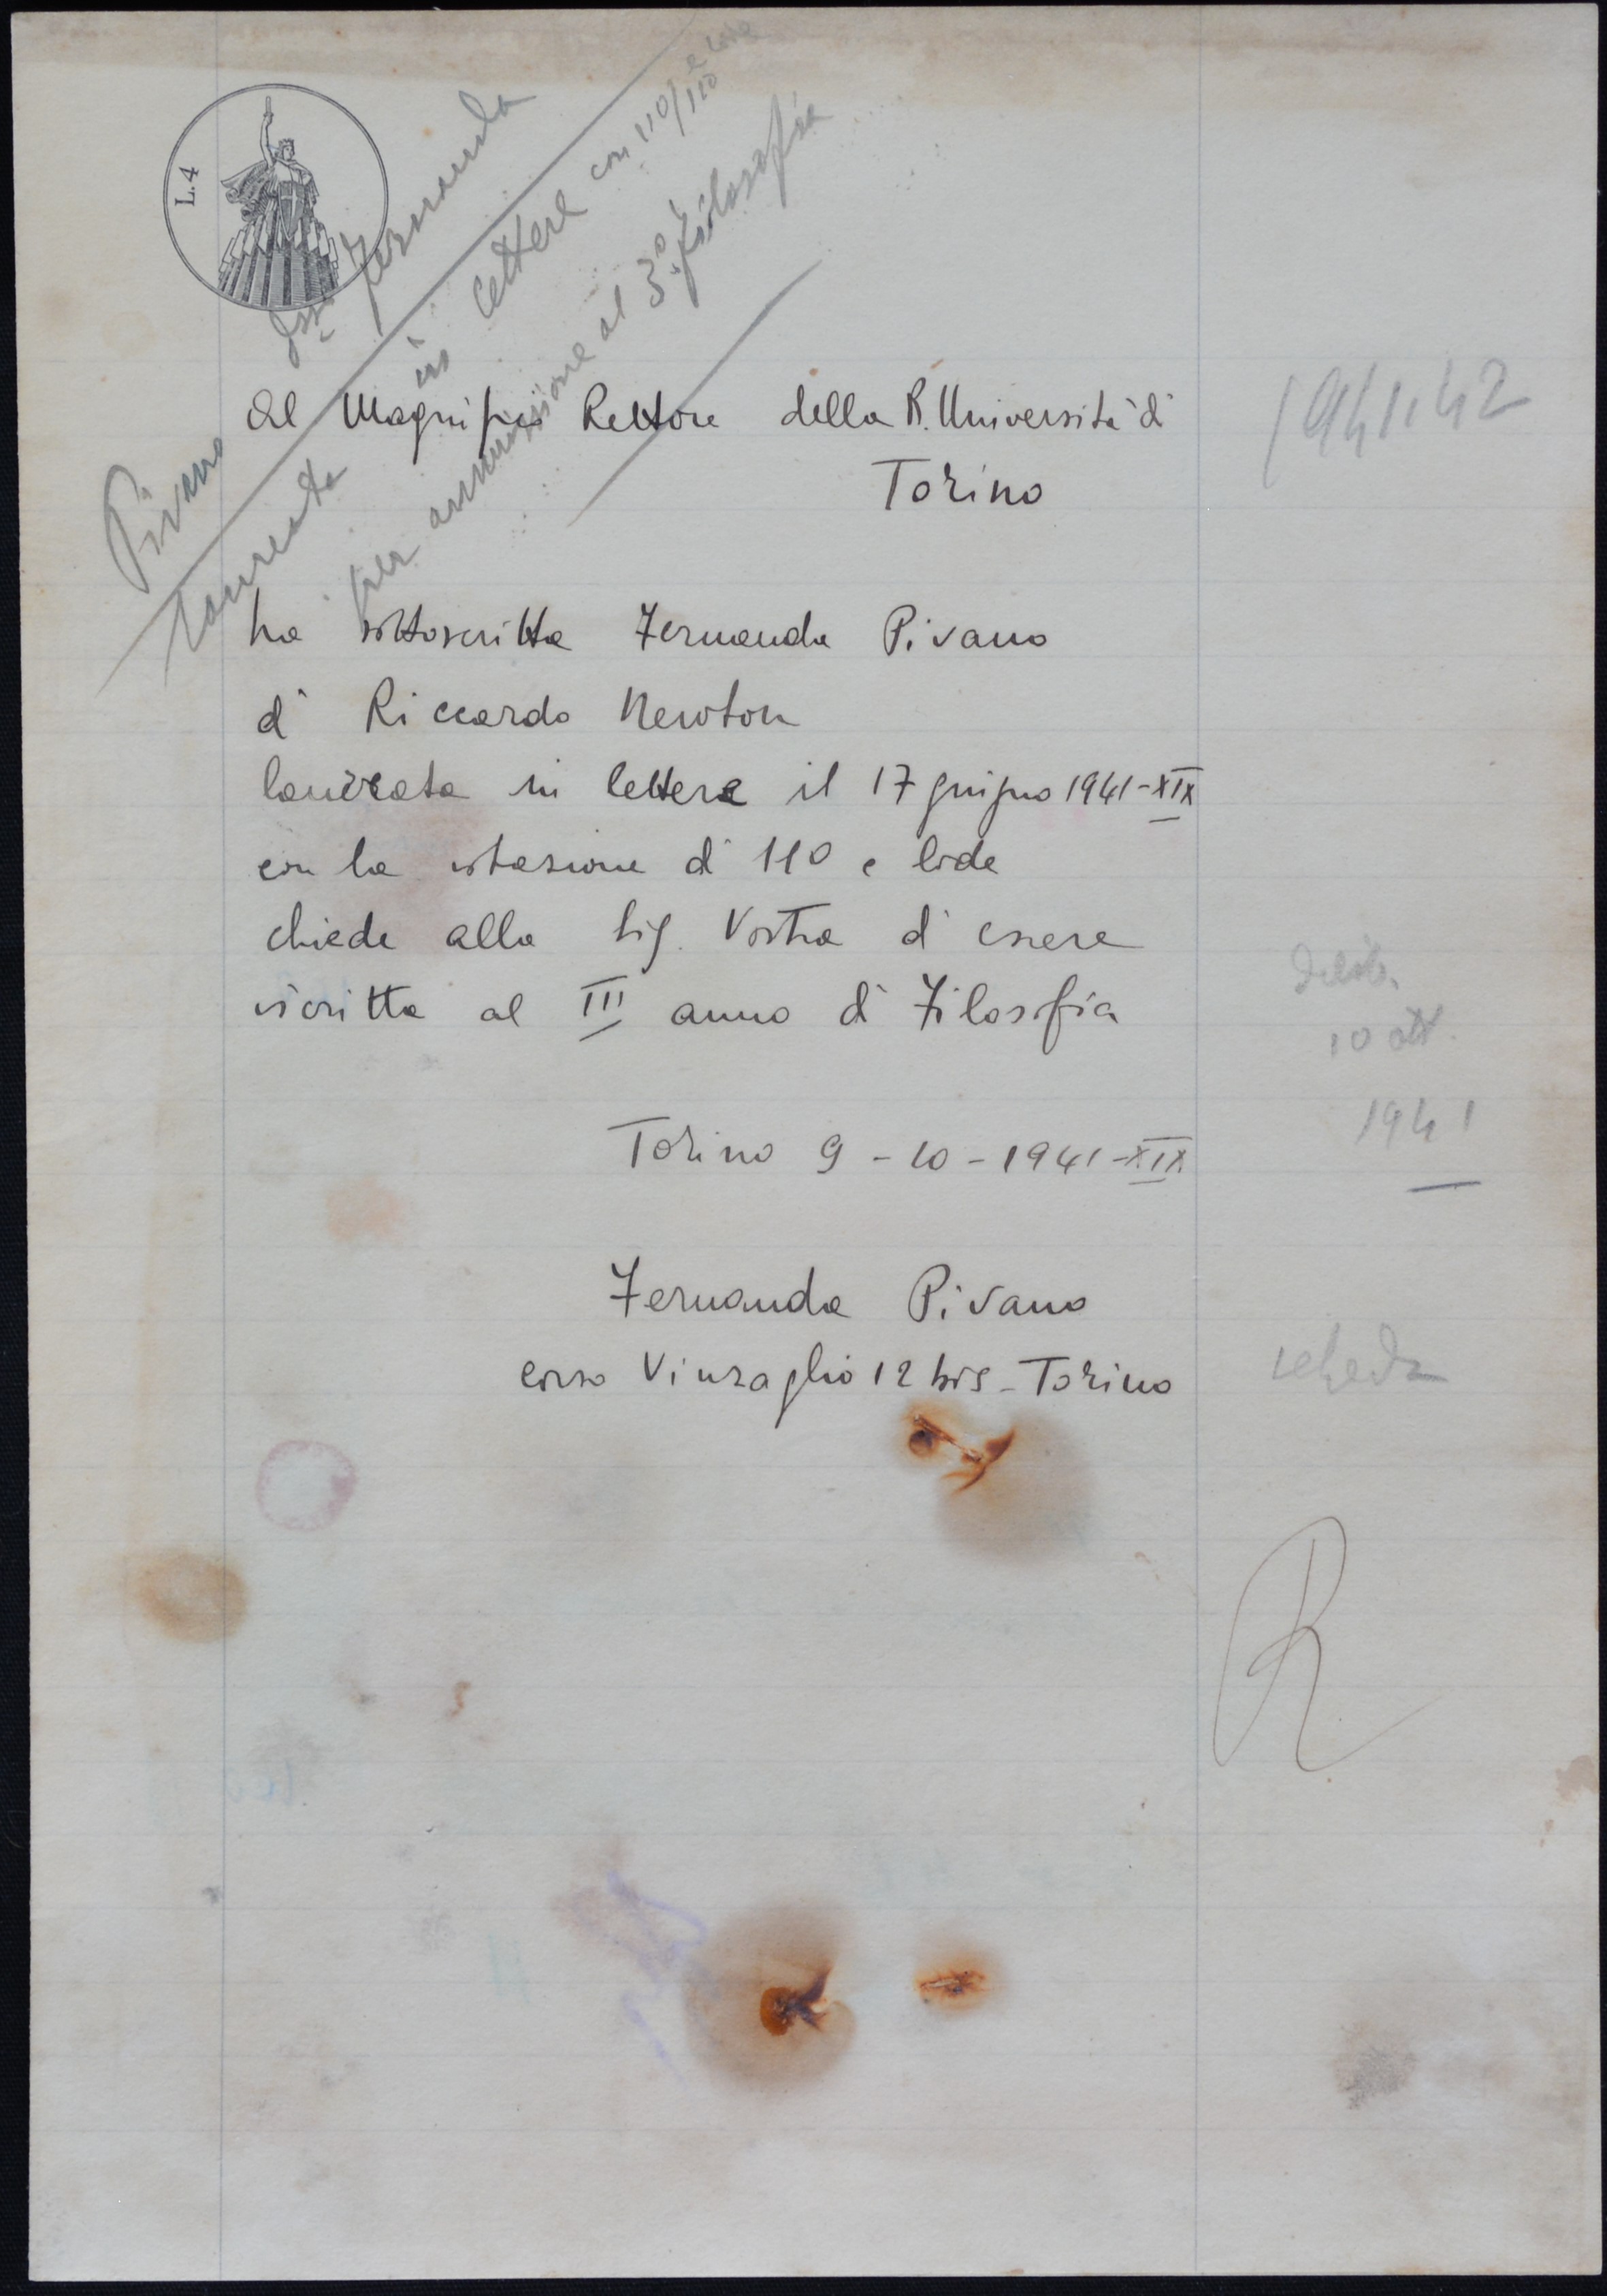 L.4
Pivano Dssa Fernanda
laureata in lettere con 110/110 e lode
per ammissione al 3° filosofia
1941-42
Al Magnifico Rettore della R. Università di
Torino
La sottoscritta Fernanda Pivano
di Riccardo Newton
laureata in lettere il 17 giugno 1941-XIX
con la votazione di 110 e lode
chiede alla Sig. Vostra di essere
iscritta al III anno di Filosofia
Delib.
10 ott.
1941
Torino 9-10-1941-XIX
Fernanda Pivano
corso Vinzaglio 12 bis - Torino
scheda
R